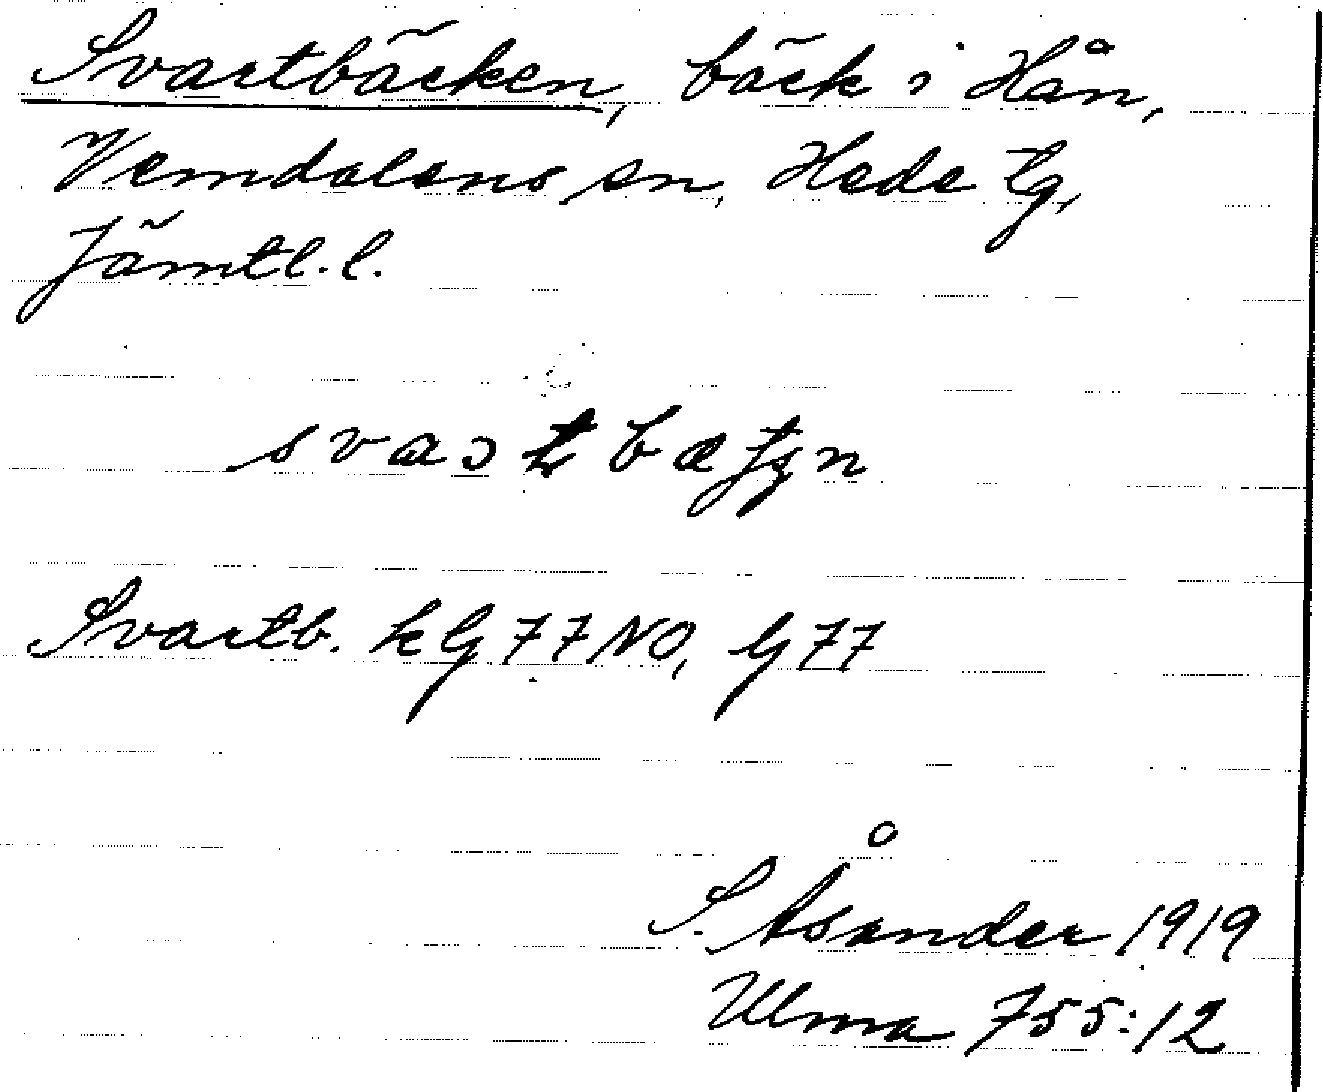 Svartbäcken, bäck i Hån,
Vemdalens sn, Hede tg,
Jämtl.l.
Svartb. kG77NO, G77
S. Åsander 1919
Ulma 755:12